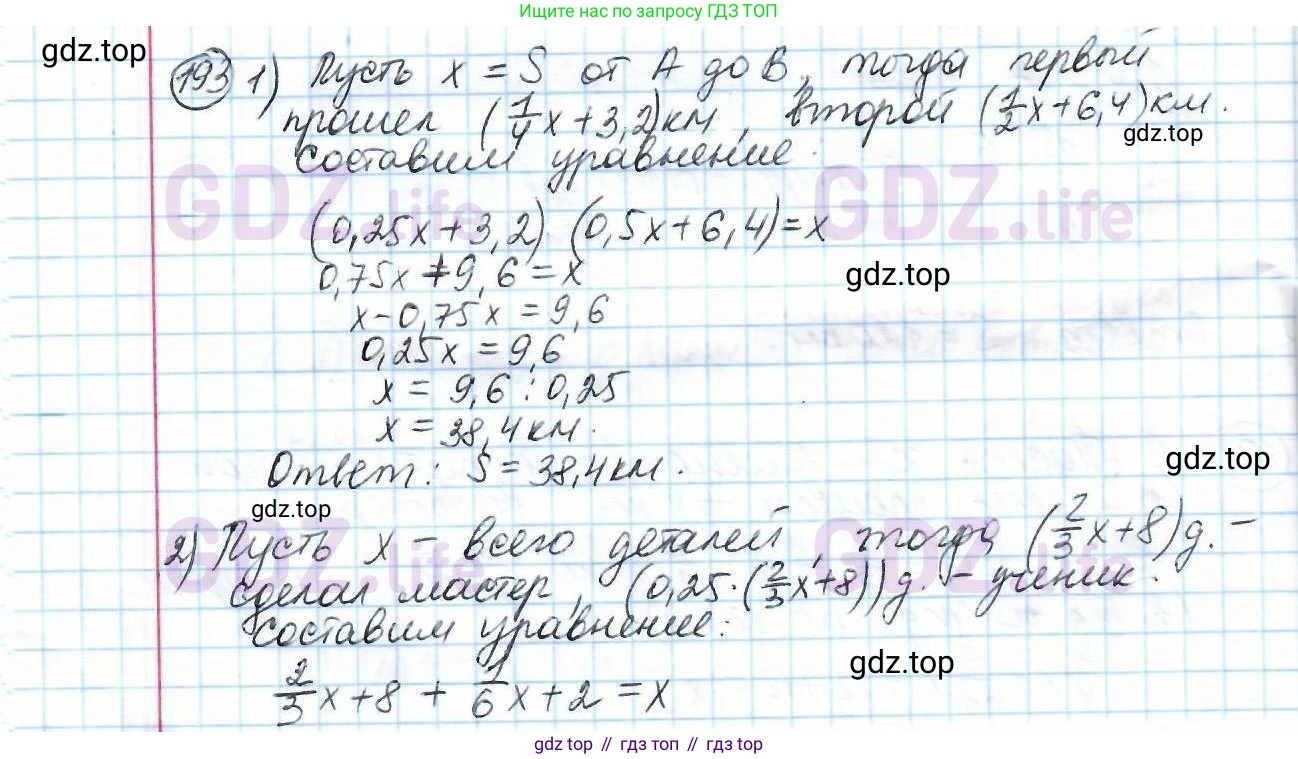 Ищите нас по запросу ГДЗ ТОП
gdz.top
193 1) Пусть x = S от A до B, тогда первый
прошел (1/4x + 3,2) км, второй (1/2x + 6,4) км.
gdz.top
Составим уравнение.
GDZ.life GDZ.life
(0,25x + 3,2) · (0,5x + 6,4) = x
0,75x + 9,6 = x
gdz.top
x - 0,75x = 9,6
0,25x = 9,6
x = 9,6 : 0,25
x = 38,4 км.
Ответ: S = 38,4 км.
gdz.top
gdz.top
GDZ.life GDZ.life
2) Пусть x - всего деталей, тогда (2/3x + 8) д. -
сделал мастер, (0,25 · (2/3x + 8)) д. - ученик.
Составим уравнение:
gdz.top
2/3x + 8 + 1/6x + 2 = x
gdz top // гдз топ // gdz top